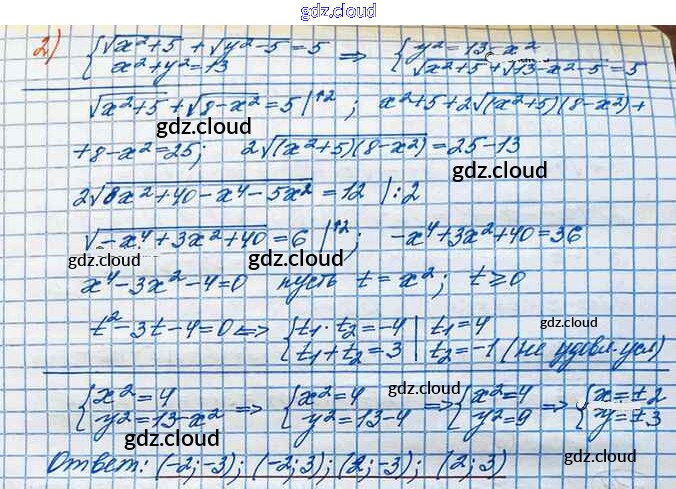 gdz.cloud
2) {√x²+5 + √y²-5 = 5 ⇒ {y² = 13 - x²
x² + y² = 13 √x²+5 + √13-x²-5 = 5
√x²+5 + √8-x² = 5 |↑2 ; x²+5+2√(x²+5)(8-x²) +
gdz.cloud
+8-x²=25; 2√(x²+5)(8-x²) = 25-13
gdz.cloud
2√8x²+40-x⁴-5x² = 12 | :2
√-x⁴+3x²+40 = 6 |↑2 ; -x⁴+3x²+40=36
gdz.cloud gdz.cloud
x⁴-3x²-4=0 пусть t = x²; t ≥ 0
t²-3t-4=0 ⇔ {t₁·t₂=-4 | t₁=4
gdz.cloud
t₁+t₂=3 | t₂=-1 (не удовл. усл)
{x²=4 ⇒ {x²=4 ⇒ {x²=4 ⇒ {x=±2
gdz.cloud
y²=13-x² y²=13-4 y²=9 y=±3
gdz.cloud
Ответ: (-2;-3); (-2;3); (2;-3); (2;3)
gdz.cloud